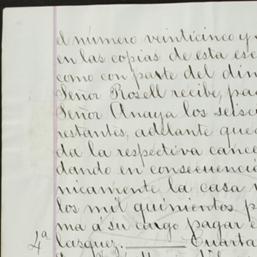 el número veinticinco y
en las copias de esta es
como con parte del din
Señor Rosell recibe, pa
Señor Anaya los seisc
restantes, adelante que
da la respectiva cance
dando en consecuenci
nicamente la casa
los mil quinientos p
ma á su cargo pagar e
lasques. Cuarta
4ª